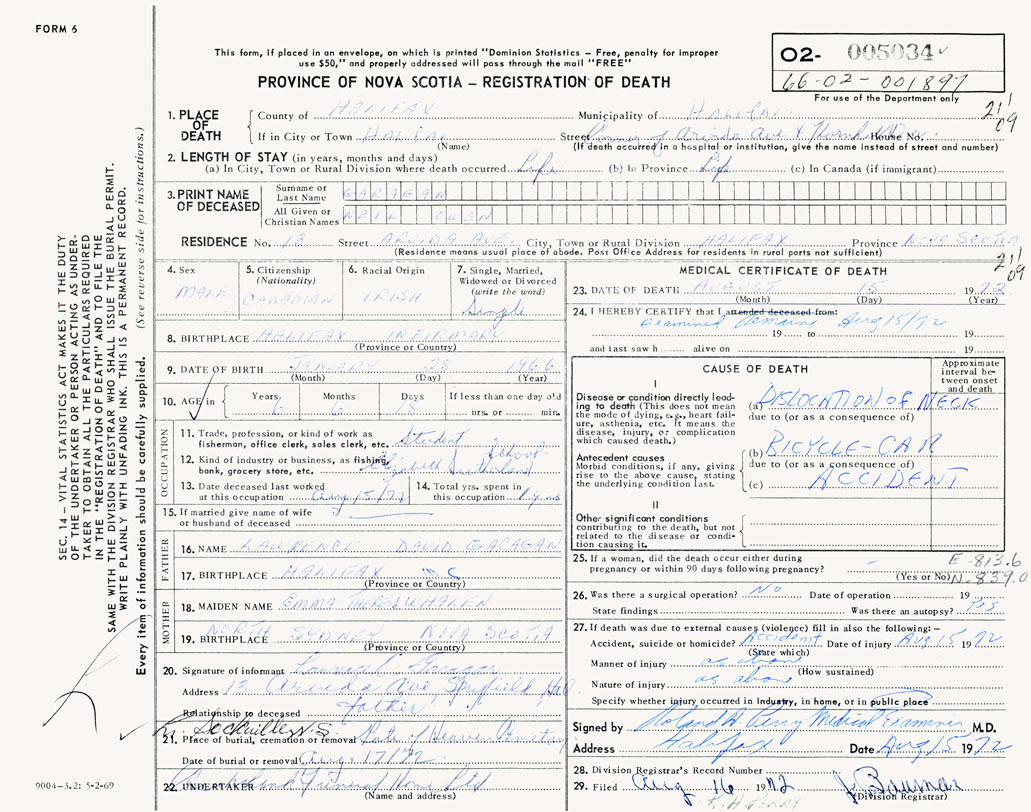 FORM 6
This form, if placed in an envelope, on which is printed "Dominion Statistics – Free, penalty for improper
use $50," and properly addressed will pass through the mail "FREE"
PROVINCE OF NOVA SCOTIA – REGISTRATION OF DEATH
02- 005034
66-02-001897
For use of the Department only
21/09
1. PLACE OF DEATH
County of HALIFAX Municipality of HALIFAX
If in City or Town HALIFAX Street Corner of Arvida Ave & House No.
(Name) (If death occurred in a hospital or institution, give the name instead of street and number)
2. LENGTH OF STAY (in years, months and days)
(a) In City, Town or Rural Division where death occurred Life (b) In Province Life (c) In Canada (if immigrant)
3. PRINT NAME OF DECEASED
Surname or Last Name GARAGAN
All Given or Christian Names NEIL OWEN
RESIDENCE No. 13 Street ARVIDA AVE. City, Town or Rural Division HALIFAX Province NOVA SCOTIA
(Residence means usual place of abode. Post Office Address for residents in rural parts not sufficient)
4. Sex MALE
5. Citizenship (Nationality) CANADIAN
6. Racial Origin IRISH
7. Single, Married, Widowed or Divorced (write the word) Single
8. BIRTHPLACE HALIFAX INFIRMARY
(Province or Country)
9. DATE OF BIRTH JANUARY 28 1966
(Month) (Day) (Year)
10. AGE in Years 6 Months 6 Days 18 If less than one day old hrs. or min.
OCCUPATION
11. Trade, profession, or kind of work as
fisherman, office clerk, sales clerk, etc. Student
12. Kind of industry or business, as fishing,
bank, grocery store, etc. Elizabeth Sutherland School
13. Date deceased last worked
at this occupation Aug 15/72
14. Total yrs. spent in
this occupation 1
15. If married give name of wife
or husband of deceased
FATHER
16. NAME LAWRENCE DAVID GARAGAN
17. BIRTHPLACE HALIFAX
(Province or Country)
MOTHER
18. MAIDEN NAME EMMA THERESA WHALEN
19. BIRTHPLACE NORTH SYDNEY NOVA SCOTIA
(Province or Country)
20. Signature of informant
Address 13 Arvida Ave Spryfield
Relationship to deceased father
Sackville N.S.
21. Place of burial, cremation or removal Gate of Heaven Cemetery
Date of burial or removal Aug 17/72
22. UNDERTAKER Funeral Home Ltd
(Name and address)
MEDICAL CERTIFICATE OF DEATH
21/09
23. DATE OF DEATH AUGUST 15 1972
(Month) (Day) (Year)
24. I HEREBY CERTIFY that I attended deceased from:
Examined remains Aug 15/72
19 to 19
and last saw h alive on 19
CAUSE OF DEATH
Approximate interval between onset and death
I
Disease or condition directly leading to death (This does not mean the mode of dying, e.g., heart failure, asthenia, etc. It means the disease, injury, or complication which caused death.)
(a) DISLOCATION OF NECK
due to (or as a consequence of)
Antecedent causes
Morbid conditions, if any, giving rise to the above cause, stating the underlying condition last.
(b) BICYCLE-CAR
due to (or as a consequence of)
(c) ACCIDENT
II
Other significant conditions
contributing to the death, but not related to the disease or condition causing it.
25. If a woman, did the death occur either during
pregnancy or within 90 days following pregnancy? –
(Yes or No)
E-813.6
N-839.0
26. Was there a surgical operation? No Date of operation 19
State findings Was there an autopsy? Yes
27. If death was due to external causes (violence) fill in also the following:–
Accident, suicide or homicide? Accident Date of injury Aug 15 1972
(State which)
Manner of injury as above
(How sustained)
Nature of injury as above
Specify whether injury occurred in industry, in home, or in public place
Signed by Roland H Perry Medical Examiner M.D.
Address Halifax Date Aug 15 1972
28. Division Registrar's Record Number
29. Filed Aug 16 1972
(Division Registrar)
R. H. PERRY
SEC. 14 – VITAL STATISTICS ACT MAKES IT THE DUTY
OF THE UNDERTAKER OR PERSON ACTING AS UNDER-
TAKER TO OBTAIN ALL THE PARTICULARS REQUIRED
IN THE "REGISTRATION OF DEATH" AND TO FILE THE
SAME WITH THE DIVISION REGISTRAR WHO SHALL ISSUE THE BURIAL PERMIT.
WRITE PLAINLY WITH UNFADING INK. THIS IS A PERMANENT RECORD.
Every item of information should be carefully supplied. (See reverse side for instructions.)
9004-3.2: 5-2-69